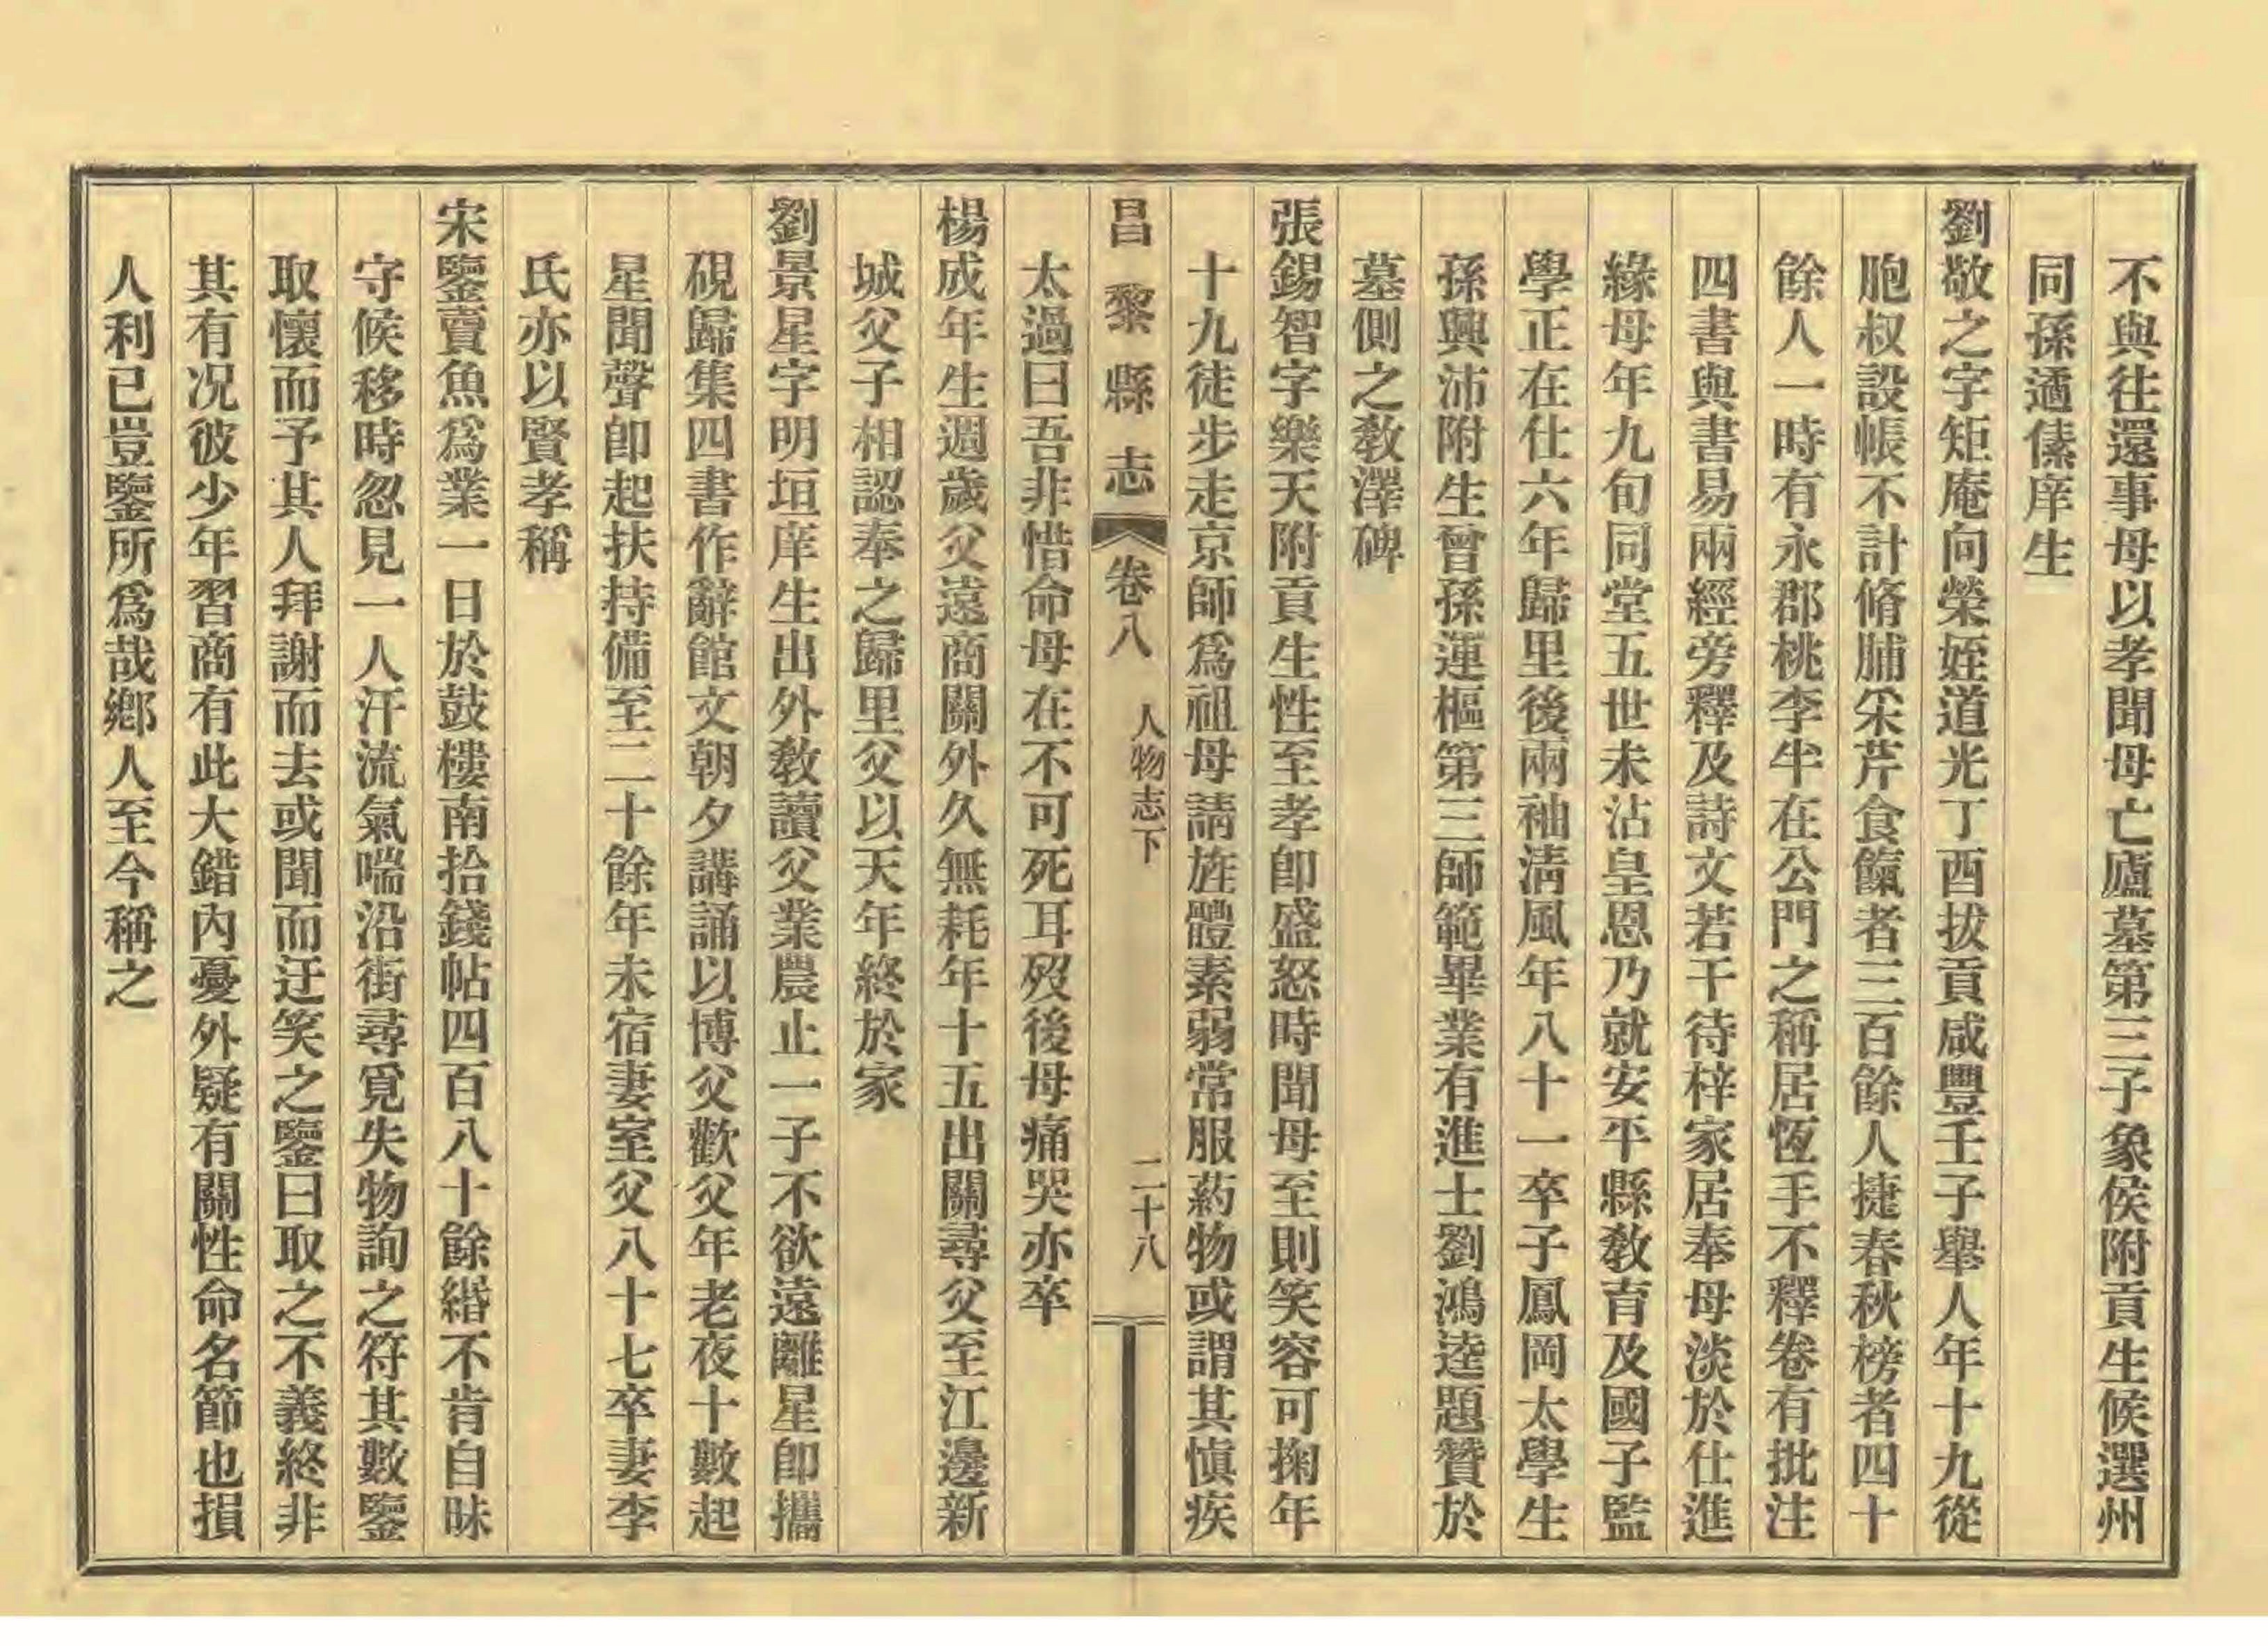 不與往還事母以孝聞母亡廬墓第三子象侯附貢生候選州
同孫遹傃庠生
劉敬之字矩庵向榮姪道光丁酉拔貢咸豐壬子舉人年十九從
胞叔設帳不計脩脯采芹食餼者三百餘人捷春秋榜者四十
餘人一時有永郡桃李半在公門之稱居恆手不釋卷有批注
四書與書易兩經旁釋及詩文若干待梓家居奉母淡於仕進
緣母年九旬同堂五世未沾皇恩乃就安平縣教育及國子監
學正在仕六年歸里後兩袖淸風年八十一卒子鳳岡太學生
孫興沛附生曾孫運樞第三師範畢業有進士劉鴻逵題贊於
墓側之教澤碑
張錫智字樂天附貢生性至孝卽盛怒時聞母至則笑容可掬年
十九徒步走京師爲祖母請旌體素弱常服葯物或謂其愼疾
昌黎縣志 卷八 人物志下 二十八
太過曰吾非惜命母在不可死耳歿後母痛哭亦卒
楊成年生週歲父遠商關外久無耗年十五出關尋父至江邊新
城父子相認奉之歸里父以天年終於家
劉景星字明垣庠生出外教讀父業農止一子不欲遠離星卽攜
硯歸集四書作辭館文朝夕講誦以博父歡父年老夜十數起
星聞聲卽起扶持備至二十餘年未宿妻室父八十七卒妻李
氏亦以賢孝稱
宋鑒賣魚爲業一日於鼓樓南拾錢帖四百八十餘緡不肯自昧
守候移時忽見一人汗流氣喘沿街尋覓失物詢之符其數鑒
取懷而予其人拜謝而去或聞而迂笑之鑒曰取之不義終非
其有况彼少年習商有此大錯內憂外疑有關性命名節也損
人利已豈鑒所爲哉鄕人至今稱之